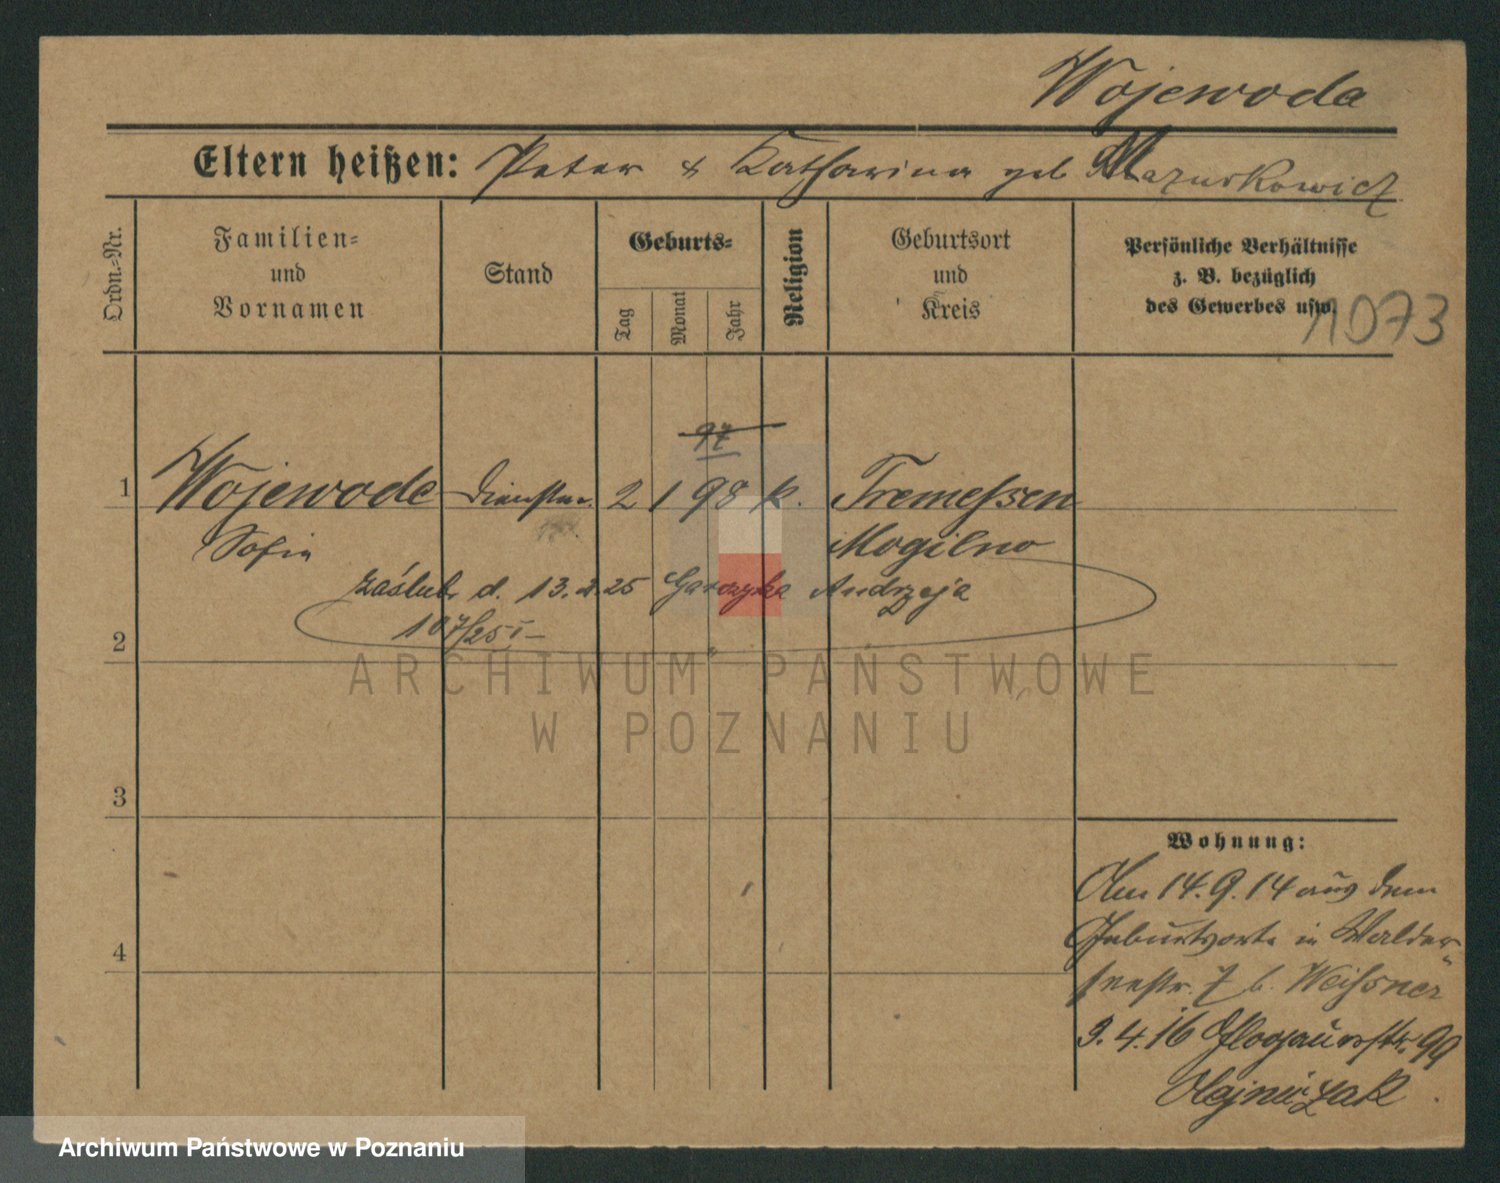 Wojewoda
Eltern heißen: Peter & Katharina geb Mazurkowicz
Ordn.-Nr.
Familien-
und
Vornamen
Stand
Geburts-
Tag
Monat
Jahr
Religion
Geburtsort
und
Kreis
Persönliche Verhältnisse
z. B. bezüglich
des Gewerbes usw.
1073
97
1 Wojewoda Dienstm. 2 1 98 k. Tremessen
Sofia Mogilno
zaślub. d. 13.2.25 Garczyka Andrzeja
107/25 I
2
ARCHIWUM PAŃSTWOWE
W POZNANIU
3
Wohnung:
Am 14.9.14 aus dem
Geburtsorte in Walder-
seestr. 7 b. Weissner
3.4.16 Glogauerstr. 99
Olejniczak
4
Archiwum Państwowe w Poznaniu